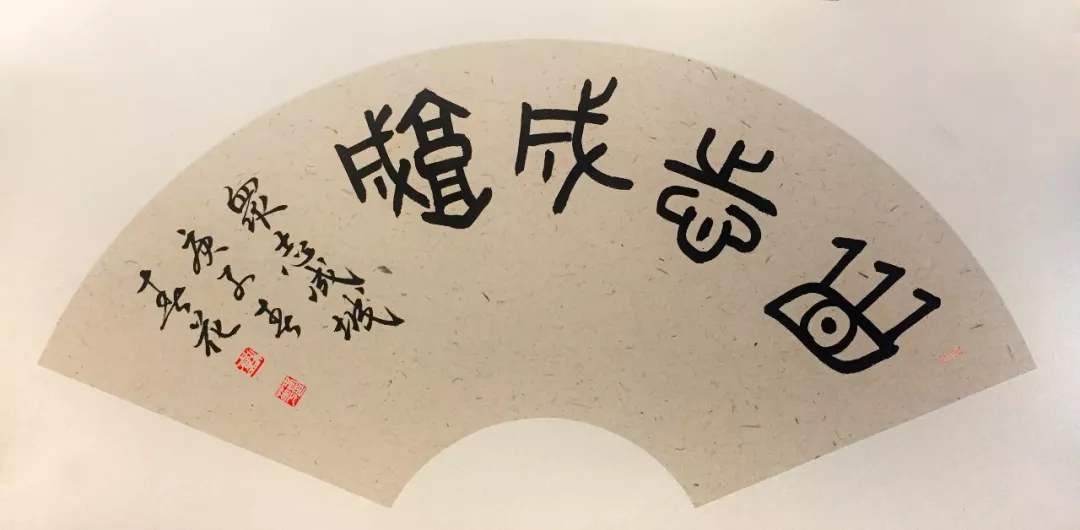 眾志成城
眾志成城
庚子春
春花